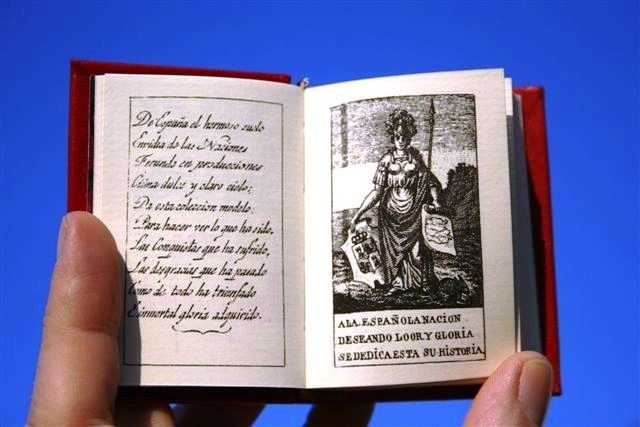 De España el hermoso suelo
Envidia de las Naciones
Fecundo en producciones
Clima dulze y claro cielo;
Da esta coleccion modelo
Para hacer ver lo que ha sido,
Las Conquistas que ha sufrido,
Las desgracias que ha pasado
Como de todo ha triunfado
E inmortal gloria adquirido.
A LA ESPAÑOLA NACION
DESEANDO LOOR Y GLORIA
SE DEDICA ESTA SU HISTORIA